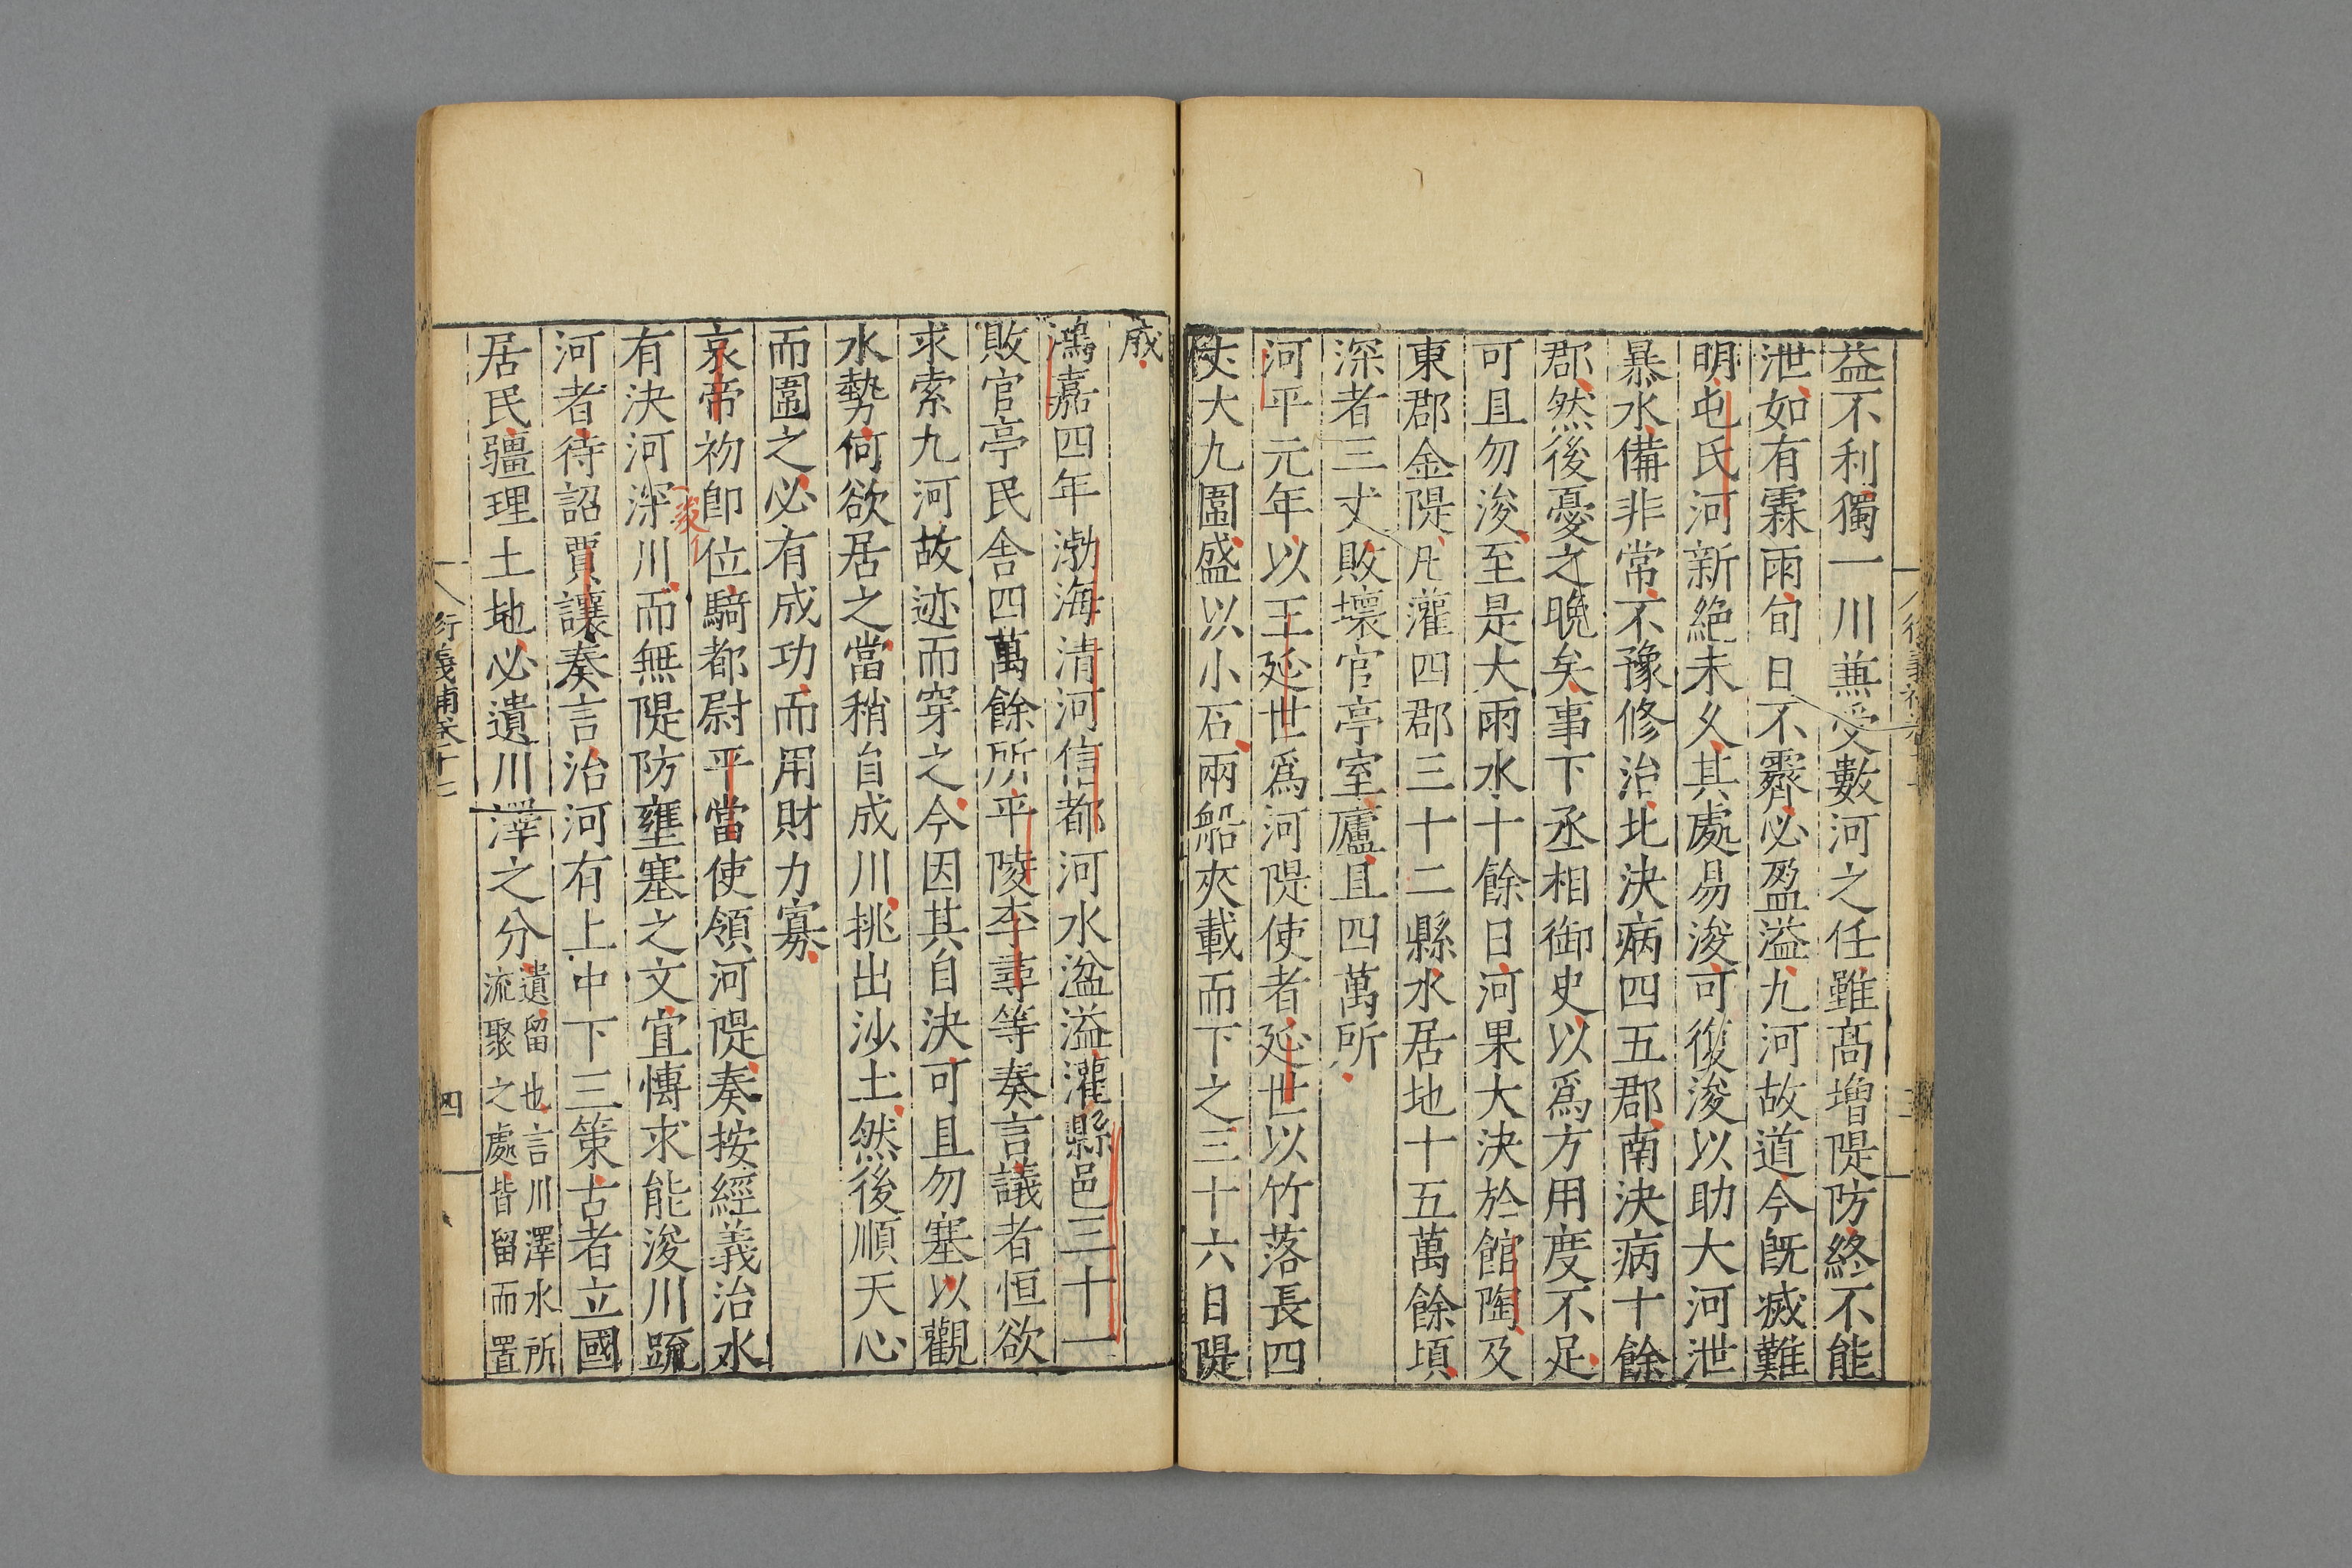 益不利獨一川兼受數河之任雖高增隄防終不能
泄如有霖雨旬日不霽必盈溢九河故道今旣滅難
明屯氏河新絶未久其處易浚可復浚以助大河泄
暴水備非常不豫修治北決病四五郡南決病十餘
郡然後憂之晚矣事下丞相御史以爲方用度不足
可且勿浚至是大雨水十餘日河果大決於館陶及
東郡金隄凡灌四郡三十二縣水居地十五萬餘頃
深者三丈敗壞官亭室廬且四萬所
河平元年以王延世爲河隄使者延世以竹落長四
丈大九圍盛以小石兩船夾載而下之三十六日隄
成
鴻嘉四年渤海清河信都河水湓溢灌縣邑三十一
敗官亭民舍四萬餘所平陵李尋等奏言議者恒欲
求索九河故迹而穿之今因其自決可且勿塞以觀
水勢何欲居之當稍自成川挑出沙土然後順天心
而圖之必有成功而用財力寡
哀帝初卽位騎都尉平當使領河隄奏按經義治水
有決河深川而無隄防壅塞之文宜慱求能浚川䟽
河者待詔賈讓奏言治河有上中下三策古者立國
居民疆理土地必遺川澤之分遺留也言川澤水所
流聚之處皆留而置
衍義補卷十七
四